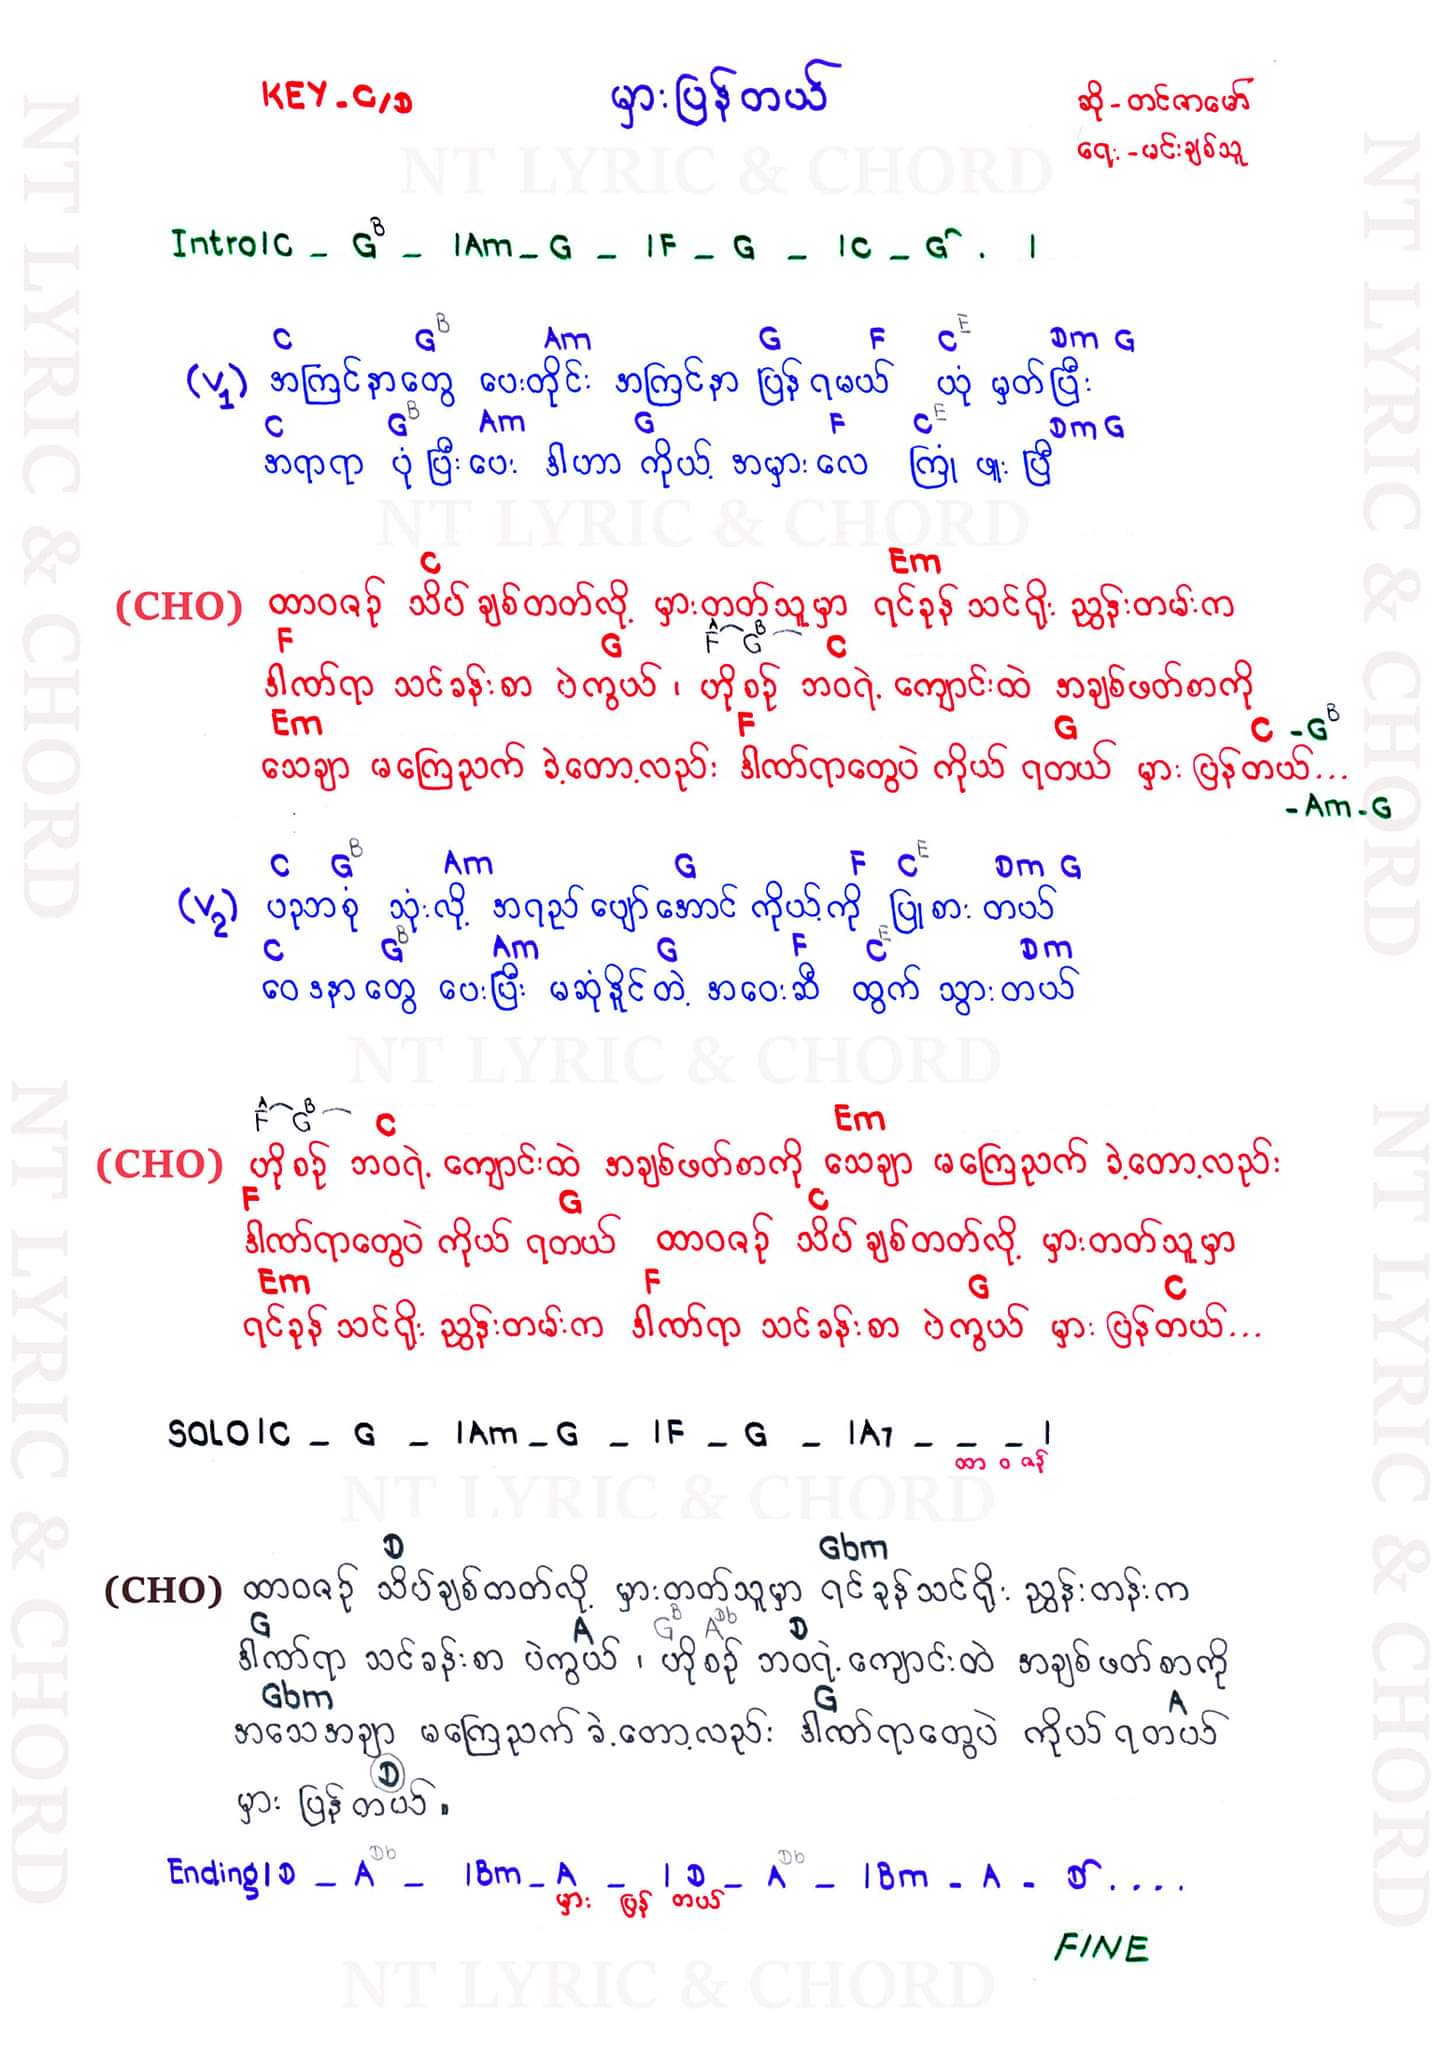 KEY-C/D
မှားပြန်တယ်
ဆို-တင်ဇာမော်
ရေး-မင်းချစ်သူ
NT LYRIC & CHORD
Intro|C - G B - |Am - G - |F - G - |C - G . |
C G B Am G F C E Dm G
(V1) အကြင်နာတွေ ပေးတိုင်း အကြင်နာ ပြန်ရမယ် ယုံ မှတ်ပြီး
C G B Am G F C E Dm G
အရာရာ ပုံပြီးပေး ဒါဟာ ကိုယ့် အမှားလေ ကြုံ ဖူး ပြီ
NT LYRIC & CHORD
C Em
(CHO) ထာဝစဉ် သိပ်ချစ်တတ်လို့ မှားတတ်သူမှာ ရင်ခုန်သင်ရိုး ညွှန်းတမ်းက
F G F A G B C
ဒါဏ်ရာ သင်ခန်းစာ ပဲကွယ် ၊ ဟိုစဉ် ဘဝရဲ့ ကျောင်းထဲ အချစ်ဖတ်စာကို
Em F G C -G B
သေချာ မကြေညက် ခဲ့တော့လည်း ဒါဏ်ရာတွေပဲ ကိုယ် ရတယ် မှား ပြန်တယ်...
-Am-G
C G B Am G F C E Dm G
(V2) ပဥာဘစုံ သုံးလို့ အရည်ပျော်အောင် ကိုယ့်ကို ပြုစား တယ်
C G B Am G F C E Dm
ဝေဒနာတွေ ပေးပြီး မဆုံနိုင်တဲ့ အဝေးဆီ ထွက် သွားတယ်
NT LYRIC & CHORD
F A G B C Em
(CHO) ဟိုစဉ် ဘဝရဲ့ ကျောင်းထဲ အချစ်ဖတ်စာကို သေချာ မကြေညက် ခဲ့တော့လည်း
F G C
ဒါဏ်ရာတွေပဲ ကိုယ် ရတယ် ထာဝစဉ် သိပ်ချစ်တတ်လို့ မှားတတ်သူမှာ
Em F G C
ရင်ခုန်သင်ရိုး ညွှန်းတမ်းက ဒါဏ်ရာ သင်ခန်းစာ ပဲကွယ် မှား ပြန်တယ်...
SOLO|C - G - |Am - G - |F - G - |A7 - - - |
ထာ ဝ ဇဉ်
NT LYRIC & CHORD
D Gbm
(CHO) ထာဝစဉ် သိပ်ချစ်တတ်လို့ မှားတတ်သူမှာ ရင်ခုန်သင်ရိုး ညွှန်းတန်းက
G A G B A Db D
ဒါဏ်ရာ သင်ခန်းစာ ပဲကွယ် ၊ ဟိုစဉ် ဘဝရဲ့ ကျောင်းထဲ အချစ်ဖတ်စာကို
Gbm G A
အသေအချာ မကြေညက် ခဲ့တော့လည်း ဒါဏ်ရာတွေပဲ ကိုယ် ရတယ်
D
မှား ပြန်တယ်.
Ending|D - A Db - |Bm - A - |D - A Db - |Bm - A - D....
မှား ပြန် တယ်
FINE
NT LYRIC & CHORD
NT LYRIC & CHORD
NT LYRIC & CHORD
NT LYRIC & CHORD
NT LYRIC & CHORD